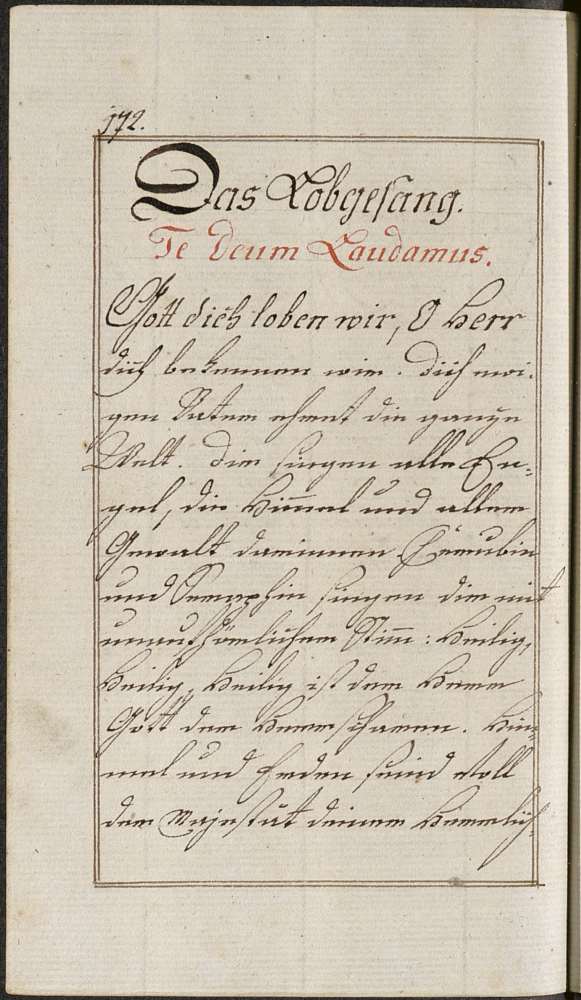 172.
Das Lobgesang.
Te Deum Laudamus.
Gott dich loben wir, O Herr
dich bekennen wir. Dich ewi-
gen Vatter ehret die gantze
Welt. Dir singen alle En-
gel, die Himmel und aller
Gewalt darinnen Cherubin
und Seraphin singen dir mit
unaufhörlicher Stim: Heilig,
Heilig, Heilig ist der Herr
Gott der Heerscharen. Him-
mel und Erden seind voll
der Majestät deiner Herrlich-